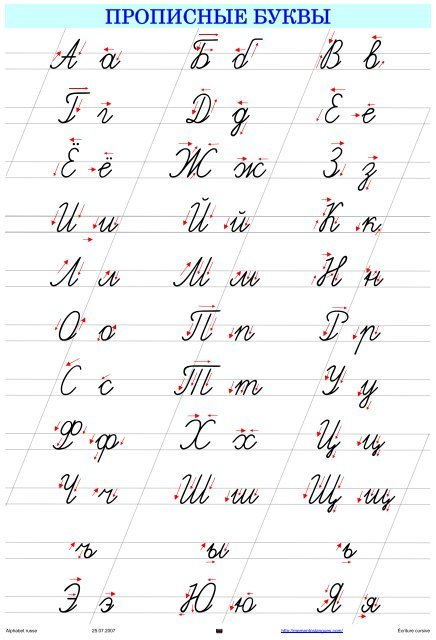 ПРОПИСНЫЕ БУКВЫ
А а Б б В в
Г г Д д Е е
Ё ё Ж ж З з
И и Й й К к
Л л М м Н н
О о П п Р р
С с Т т У у
Ф ф Х х Ц ц
Ч ч Ш ш Щ щ
ъ ы ь
Э э Ю ю Я я
Alphabet russe 25.07.2007 http://mementoslangues.com/ Écriture cursive